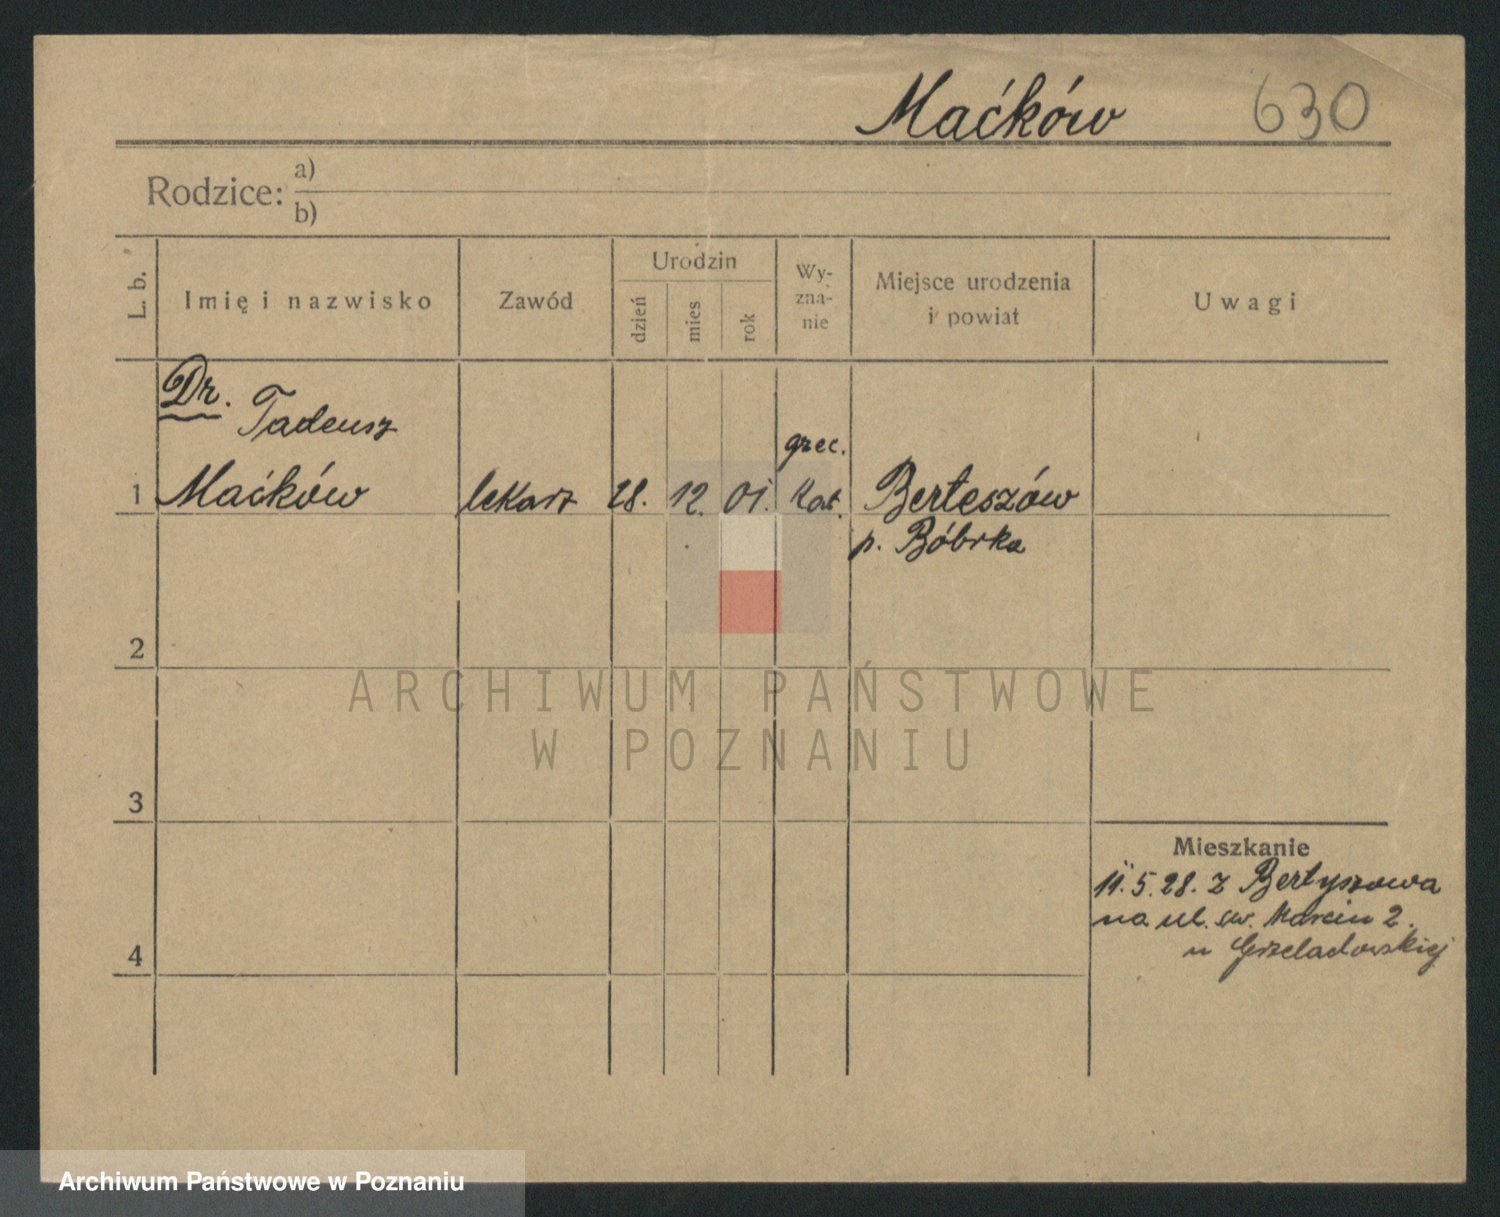 Maćków 630
Rodzice: a)
b)
L. b. Imię i nazwisko Zawód Urodzin Wy-zna-nie Miejsce urodzenia i powiat Uwagi
dzień mies rok
Dr. Tadeusz
grec.
1 Maćków lekarz 28. 12. 01. kat. Berteszów
p. Bóbrka
2
ARCHIWUM PAŃSTWOWE
W POZNANIU
3
Mieszkanie
11.5.28. z Bertyszowa
na ul. św. Marcin 2.
u Grzeladowskiej
4
Archiwum Państwowe w Poznaniu